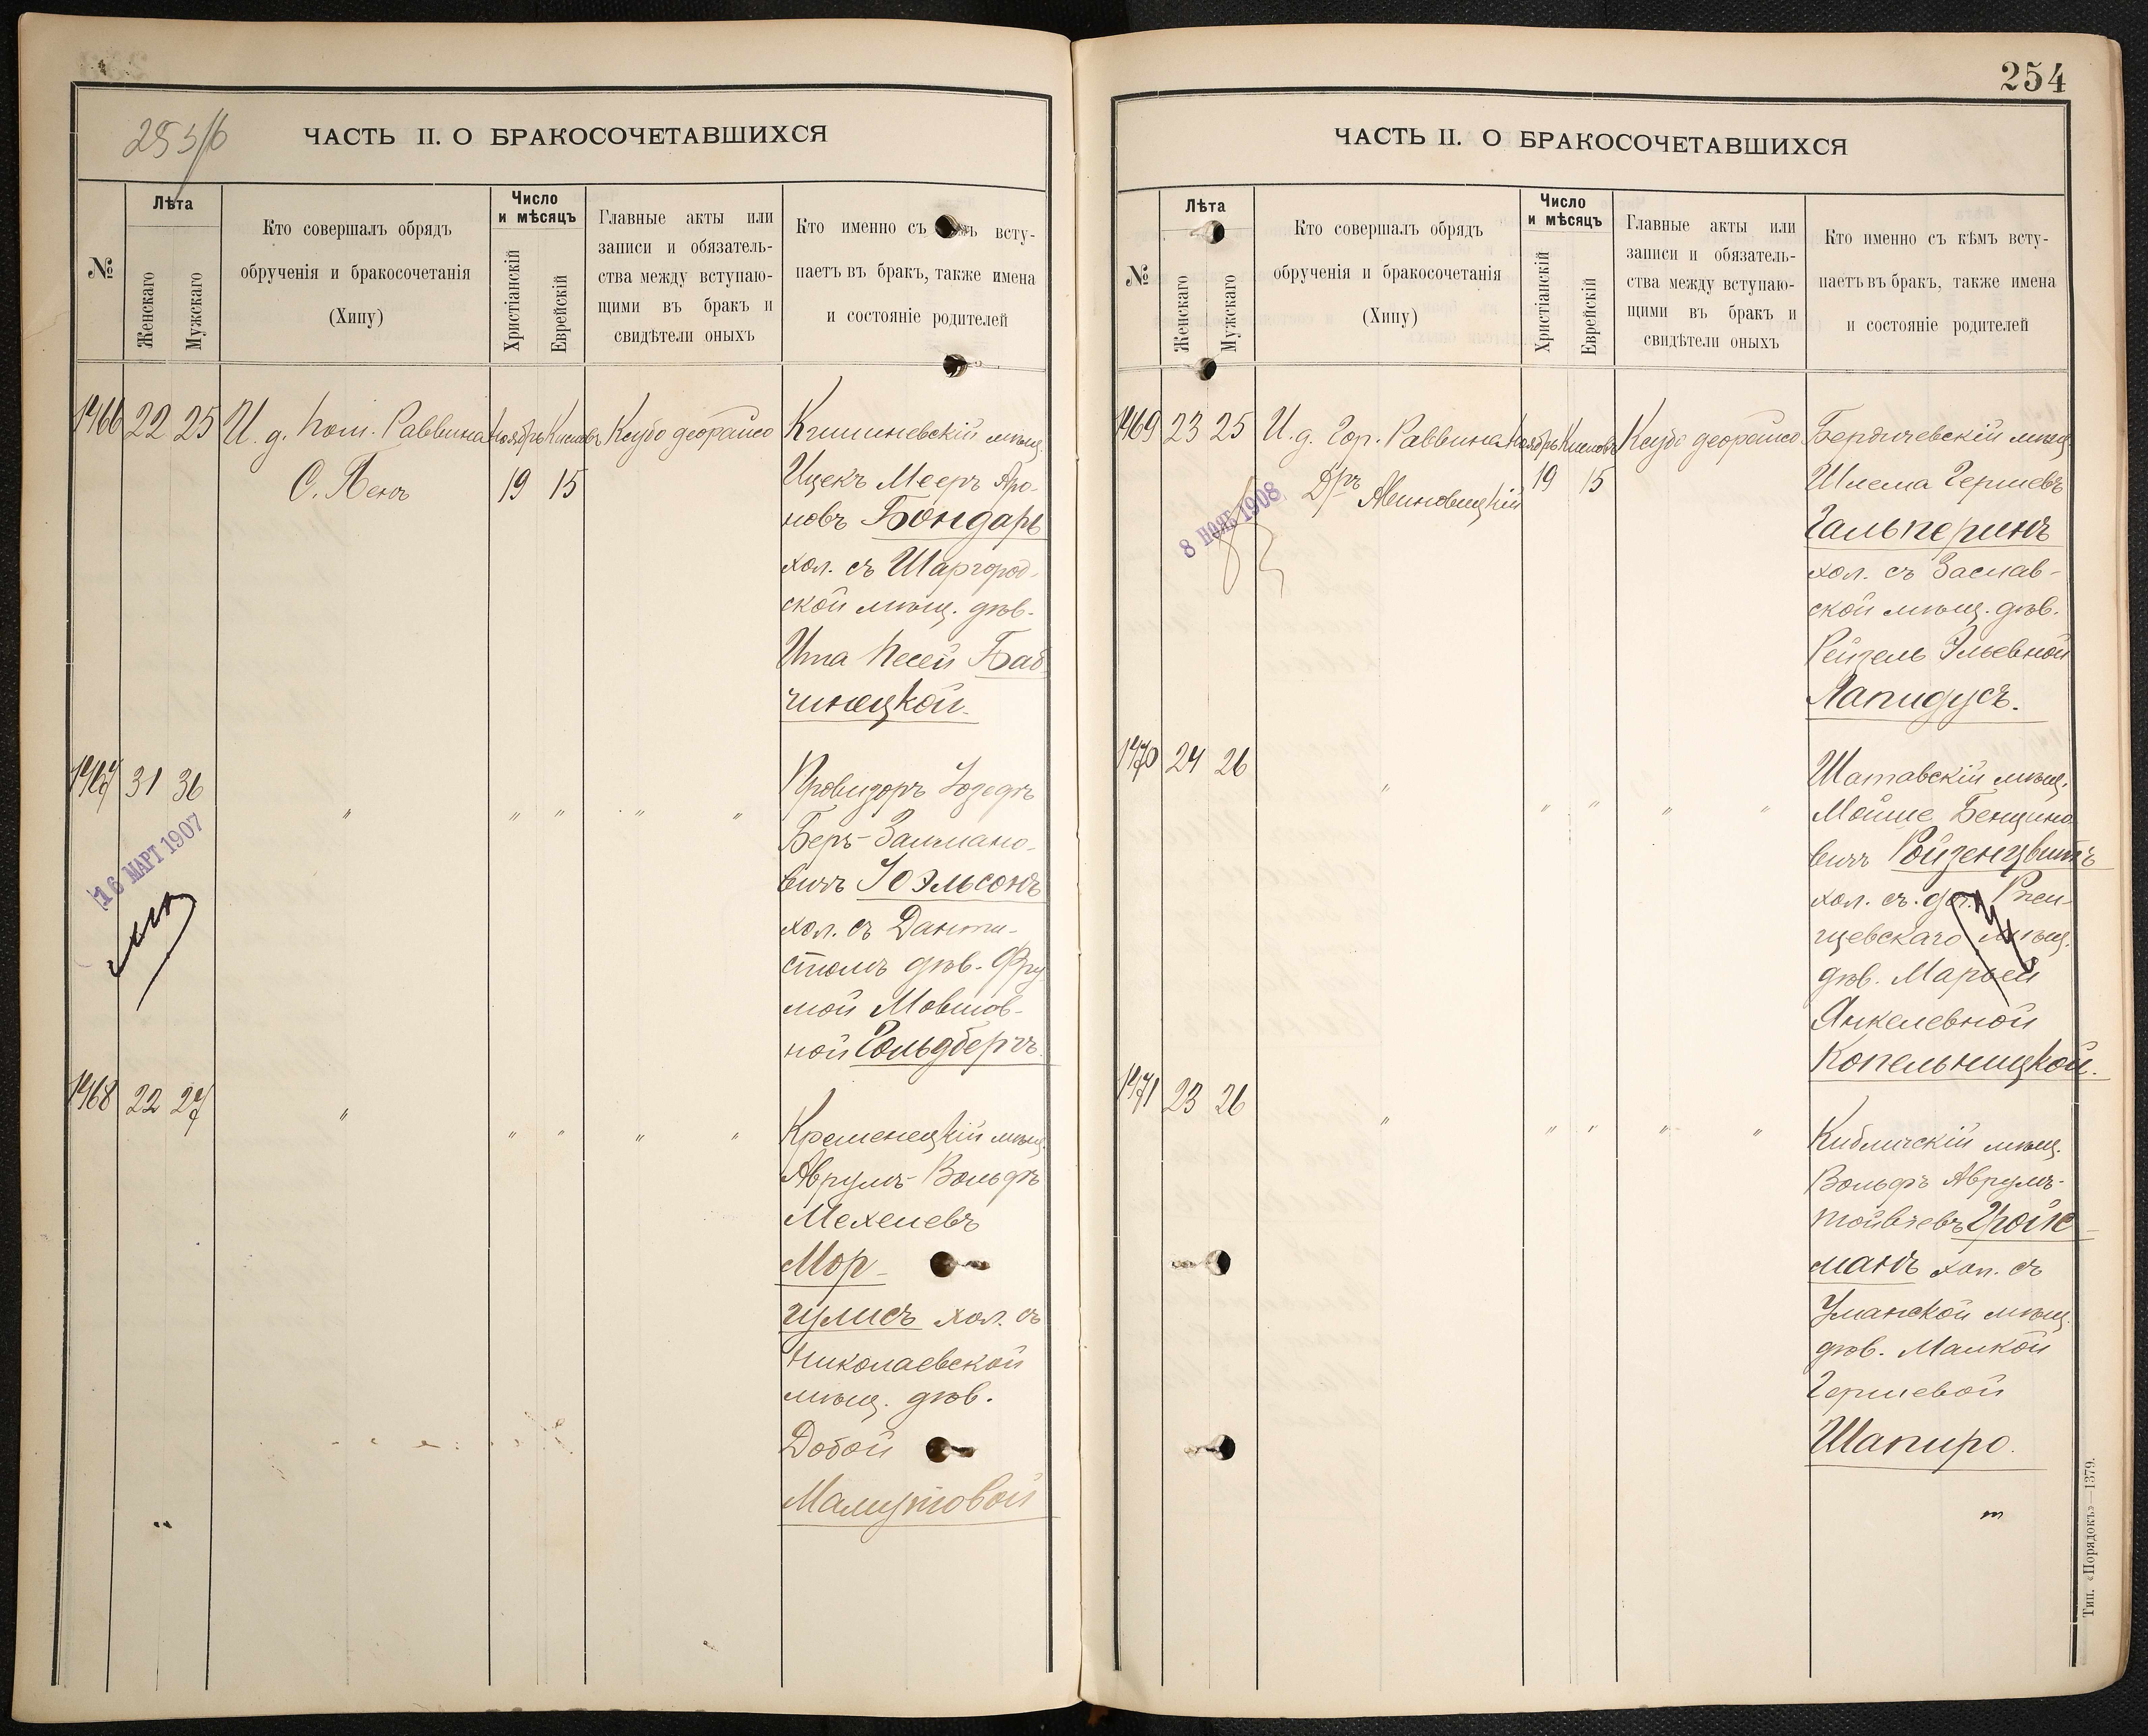 253/б
ЧАСТЬ II. О БРАКОСОЧЕТАВШИХСЯ
№
Лѣта
Женскаго
Мужскаго
Кто совершалъ обрядъ
обрученія и бракосочетанія
(Хипу)
Число
и мѣсяцъ
Христіанскій
Еврейскій
Главные акты или
записи и обязатель-
ства между вступаю-
щими въ бракъ и
свидѣтели оныхъ
Кто именно съ всту-
паетъ въ бракъ, также имена
и состояніе родителей
1466 22 25 И. д. Пом. Раввина Ноябрь Кислевъ Ксубо деорайсо Кишиневскій мѣщ.
С. Пенъ 19 15 Ицекъ Мееръ Аро-
новъ Бондарь
хол. съ Шаргород-
ской мѣщ. дѣв.
Ита Песей Баб
чинецкой.
1467 31 36 Провизоръ Іозефъ
" " " " " Беръ-Залмано-
16 МАРТ 1907
вичъ Іоэльсонъ
хол. съ Данти-
стомъ дѣв. Фру
мой Мовшов-
ной Гольдбергъ.
1468 22 27
" " " " " Кременецкій мѣщ.
Аврумъ-Вольфъ
Мехелевъ
Мор-
гулисъ хол. съ
Николаевской
мѣщ. дѣв.
Добой
254
ЧАСТЬ II. О БРАКОСОЧЕТАВШИХСЯ
№
Лѣта
Женскаго
Мужскаго
Кто совершалъ обрядъ
обрученія и бракосочетанія
(Хипу)
Число
и мѣсяцъ
Христіанскій
Еврейскій
Главные акты или
записи и обязатель-
ства между вступаю-
щими въ бракъ и
свидѣтели оныхъ
Кто именно съ кѣмъ всту-
паетъ въ бракъ, также имена
и состояніе родителей
1469 23 25 И. д. Гор. Раввина Ноябрь Кислевъ Ксубо деорайсо Бердичевскій мѣщ.
Д/ръ Авиновицкій 19 15 Шлема Гершевъ
8 НОЯБ 1908
Гальперинъ
хол. съ Заслав-
ской мѣщ. дѣв.
Рейзель Эльевной
Лапидусъ.
1470 24 26 Шатавскій мѣщ.
" " " " " Мойше Бенціоно
вичъ Ройзенцвитъ
хол. съ
щевскаго мѣщ.
дѣв. Марьей
Янкелевной
Копельницкой.
1471 23 26
" " " " " Кибличскій мѣщ.
Вольфъ Аврумъ-
Тойвіевъ Гройс-
манъ хол. съ
Уманской мѣщ.
дѣв. Малкой
Гершевой
Шапиро.
Тип. «Порядокъ»—1379.